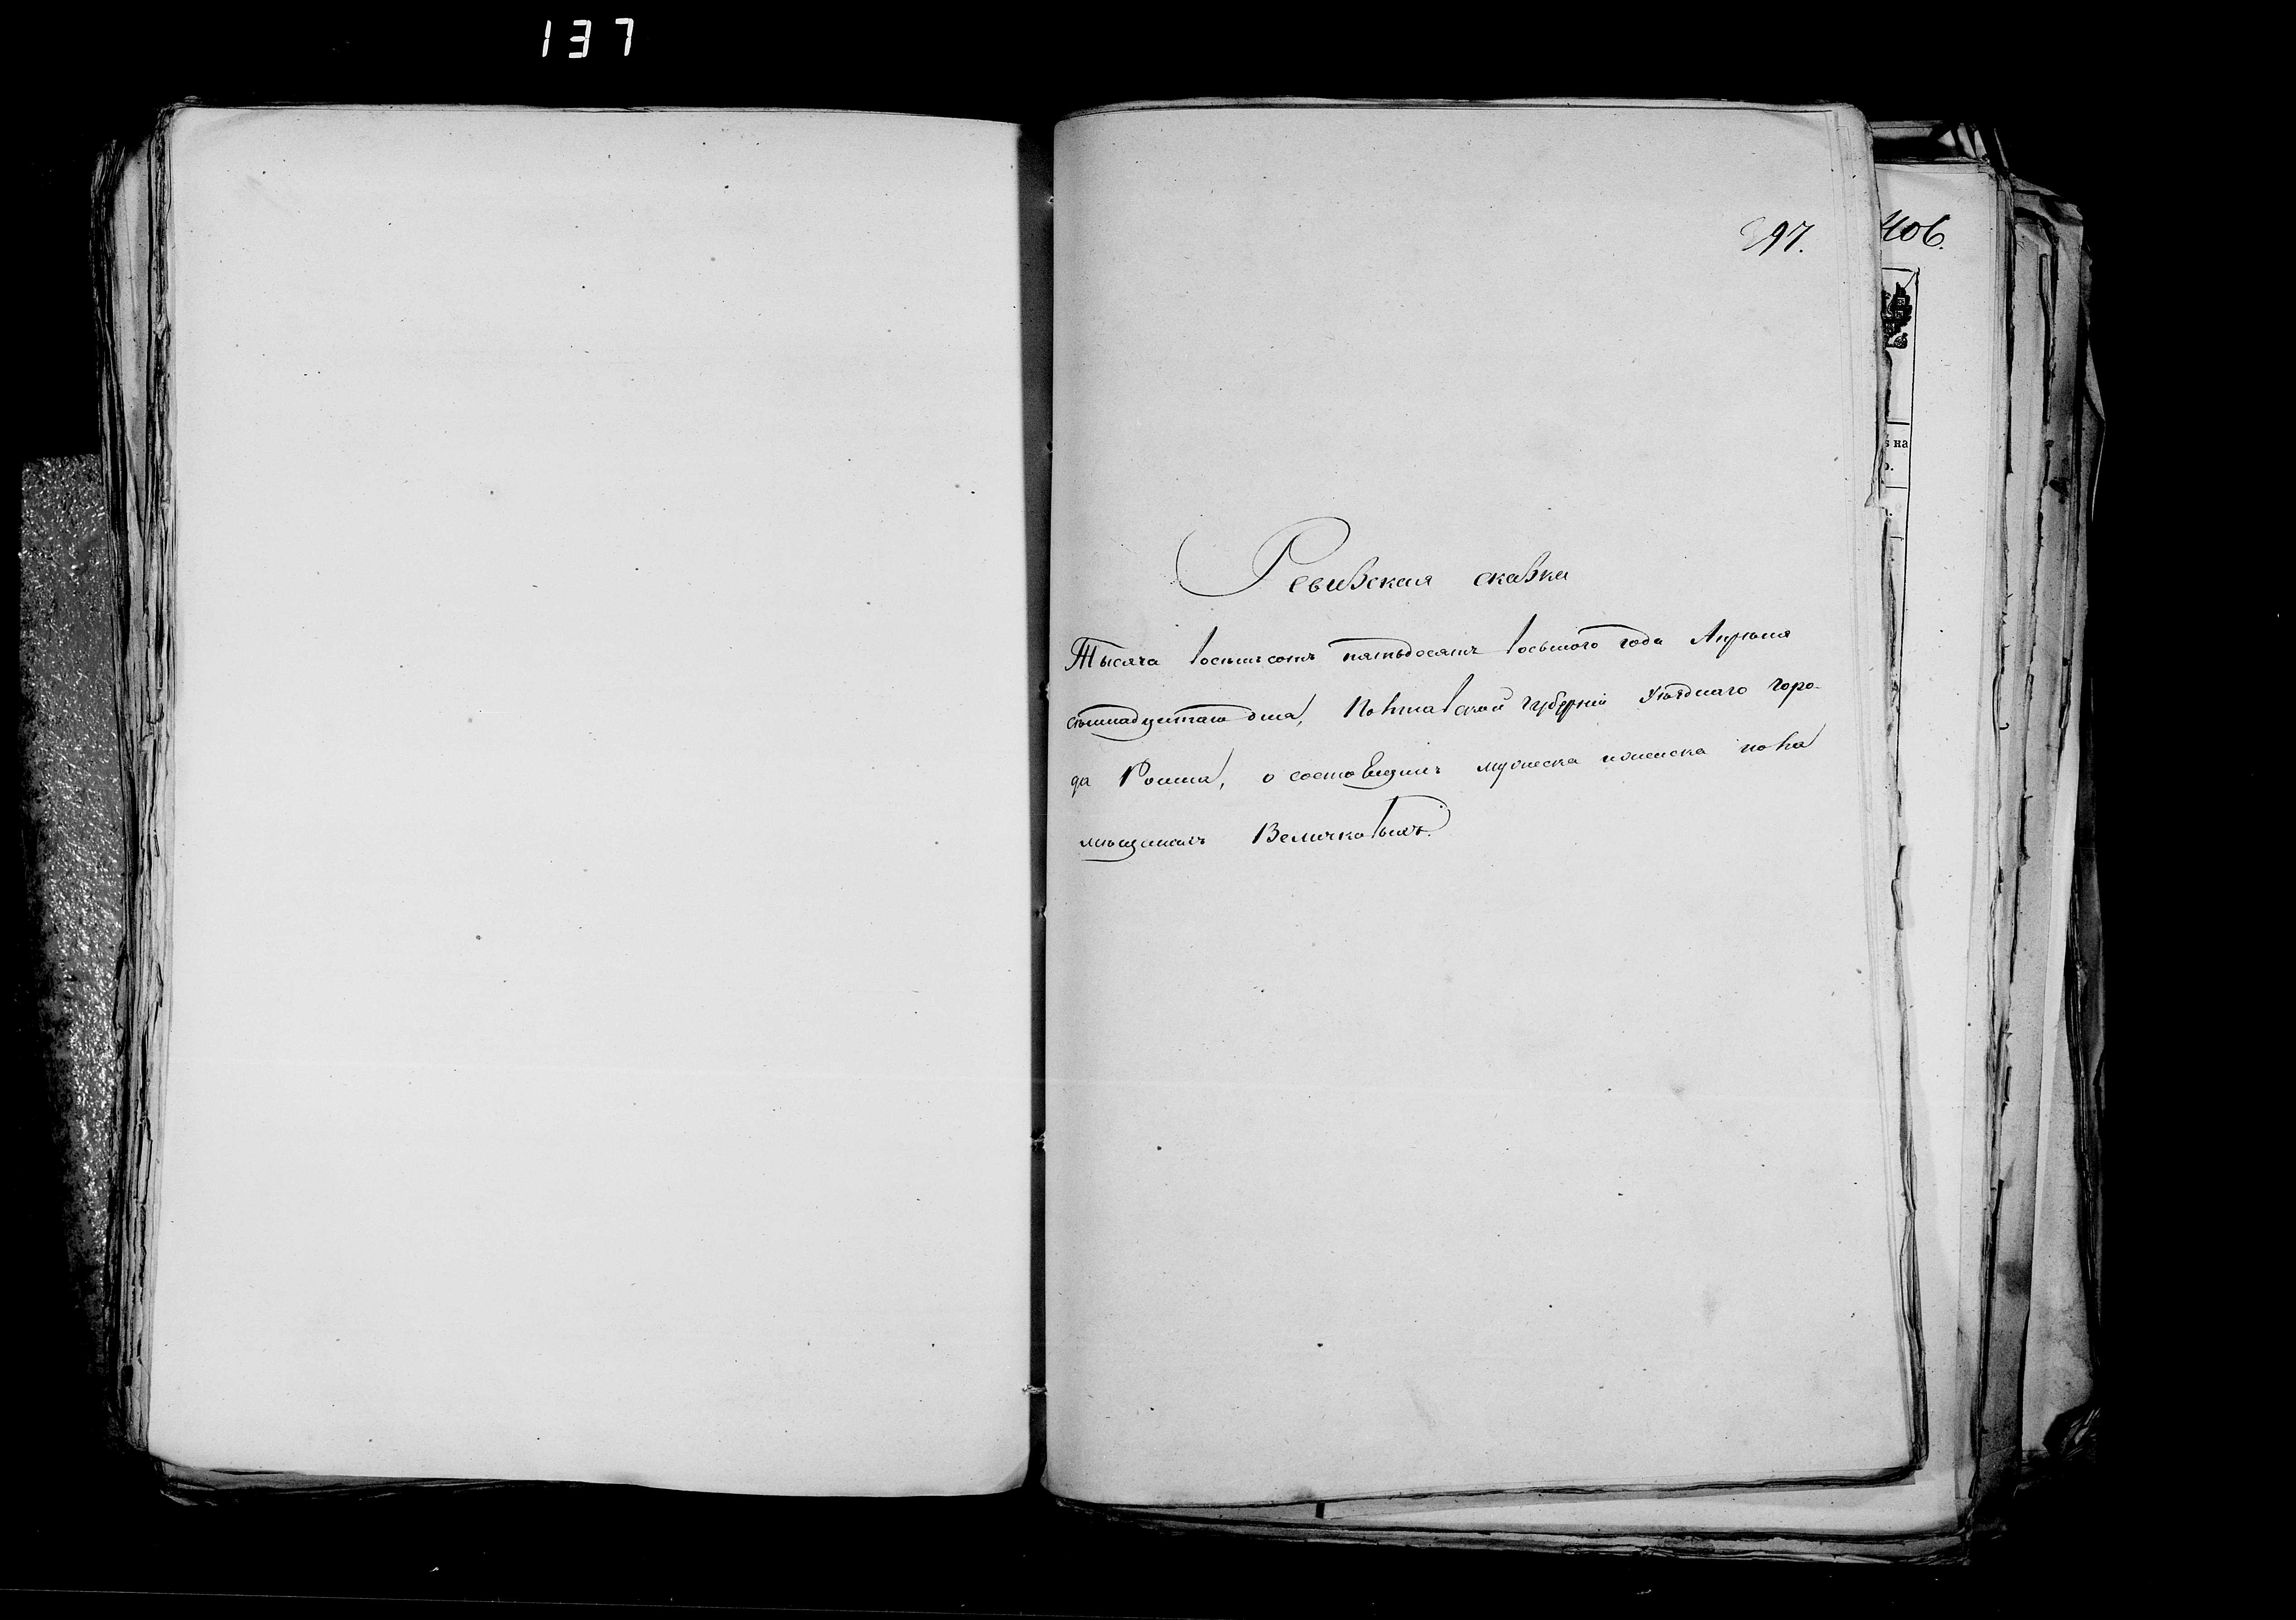 137
397.
406.
ѣ на
Ревизская сказка
Тысяча восемьсотъ пятьдесятъ восьмого года Апрѣля
семнадцатаго дня, Полтавской губерніи Уѣзднаго горо-
да Ромна, о состоящихъ мужеска и женска пола
мѣщанахъ Величковыхъ.